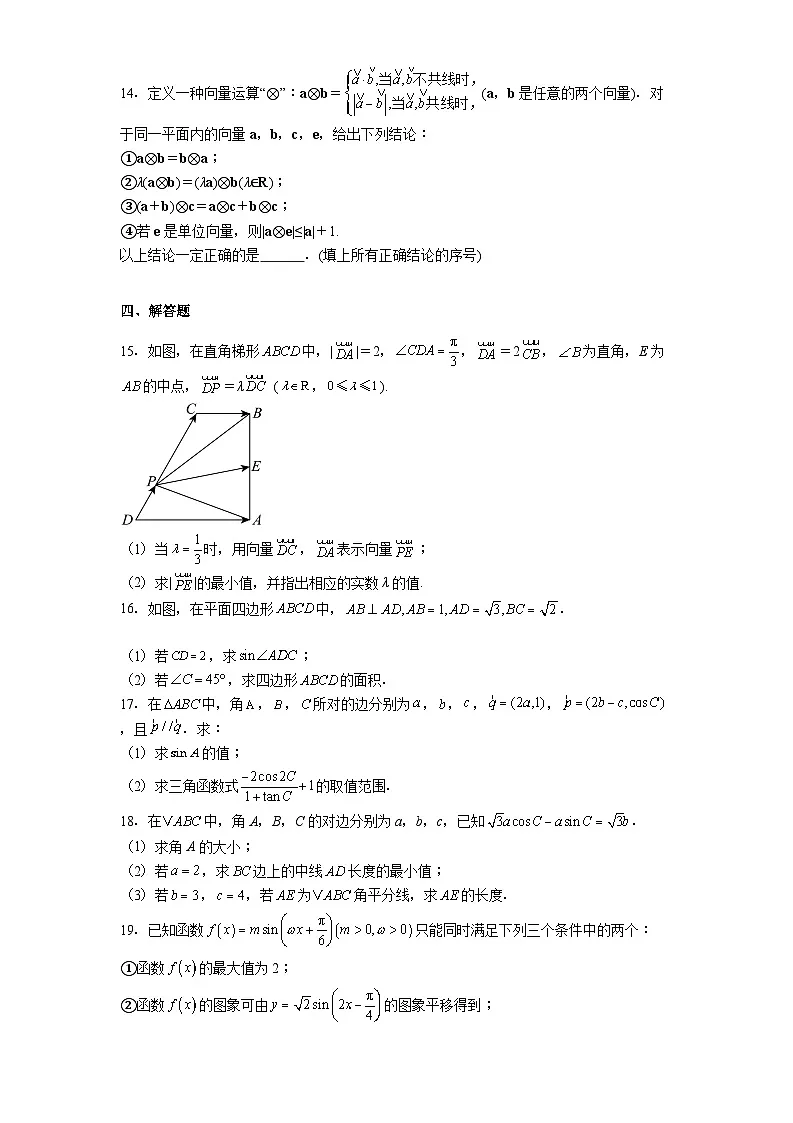 14．定义一种向量运算“⊗”：a⊗b＝{a·b,当a,b不共线时，
|a－b|,当a,b共线时，(a，b是任意的两个向量)．对
于同一平面内的向量a，b，c，e，给出下列结论：
①a⊗b＝b⊗a；
②λ(a⊗b)＝(λa)⊗b(λ∈R)；
③(a＋b)⊗c＝a⊗c＋b⊗c；
④若e是单位向量，则|a⊗e|≤|a|＋1.
以上结论一定正确的是______．(填上所有正确结论的序号)
四、解答题
15．如图，在直角梯形ABCD中，|DA|=2，∠CDA=π/3，DA=2CB，∠B为直角，E为
AB的中点，DP=λDC（λ∈R，0≤λ≤1).
C B
P E
D A
（1）当λ=1/3时，用向量DC，DA表示向量PE；
（2）求|PE|的最小值，并指出相应的实数λ的值.
16．如图，在平面四边形ABCD中，AB⊥AD,AB=1,AD=√3,BC=√2．
（1）若CD=2，求sin∠ADC；
（2）若∠C=45°，求四边形ABCD的面积．
17．在ΔABC中，角A，B，C所对的边分别为a，b，c，q=(2a,1)，p=(2b-c,cosC)
，且p//q．求：
（1）求sinA的值；
（2）求三角函数式(-2cos2C)/(1+tanC)+1的取值范围．
18．在∨ABC中，角A，B，C的对边分别为a，b，c，已知√3acosC-asinC=√3b．
（1）求角A的大小；
（2）若a=2，求BC边上的中线AD长度的最小值；
（3）若b=3，c=4，若AE为∨ABC角平分线，求AE的长度．
19．已知函数f(x)=msin(ωx+π/6)(m>0,ω>0)只能同时满足下列三个条件中的两个：
①函数f(x)的最大值为2；
②函数f(x)的图象可由y=√2sin(2x-π/4)的图象平移得到；